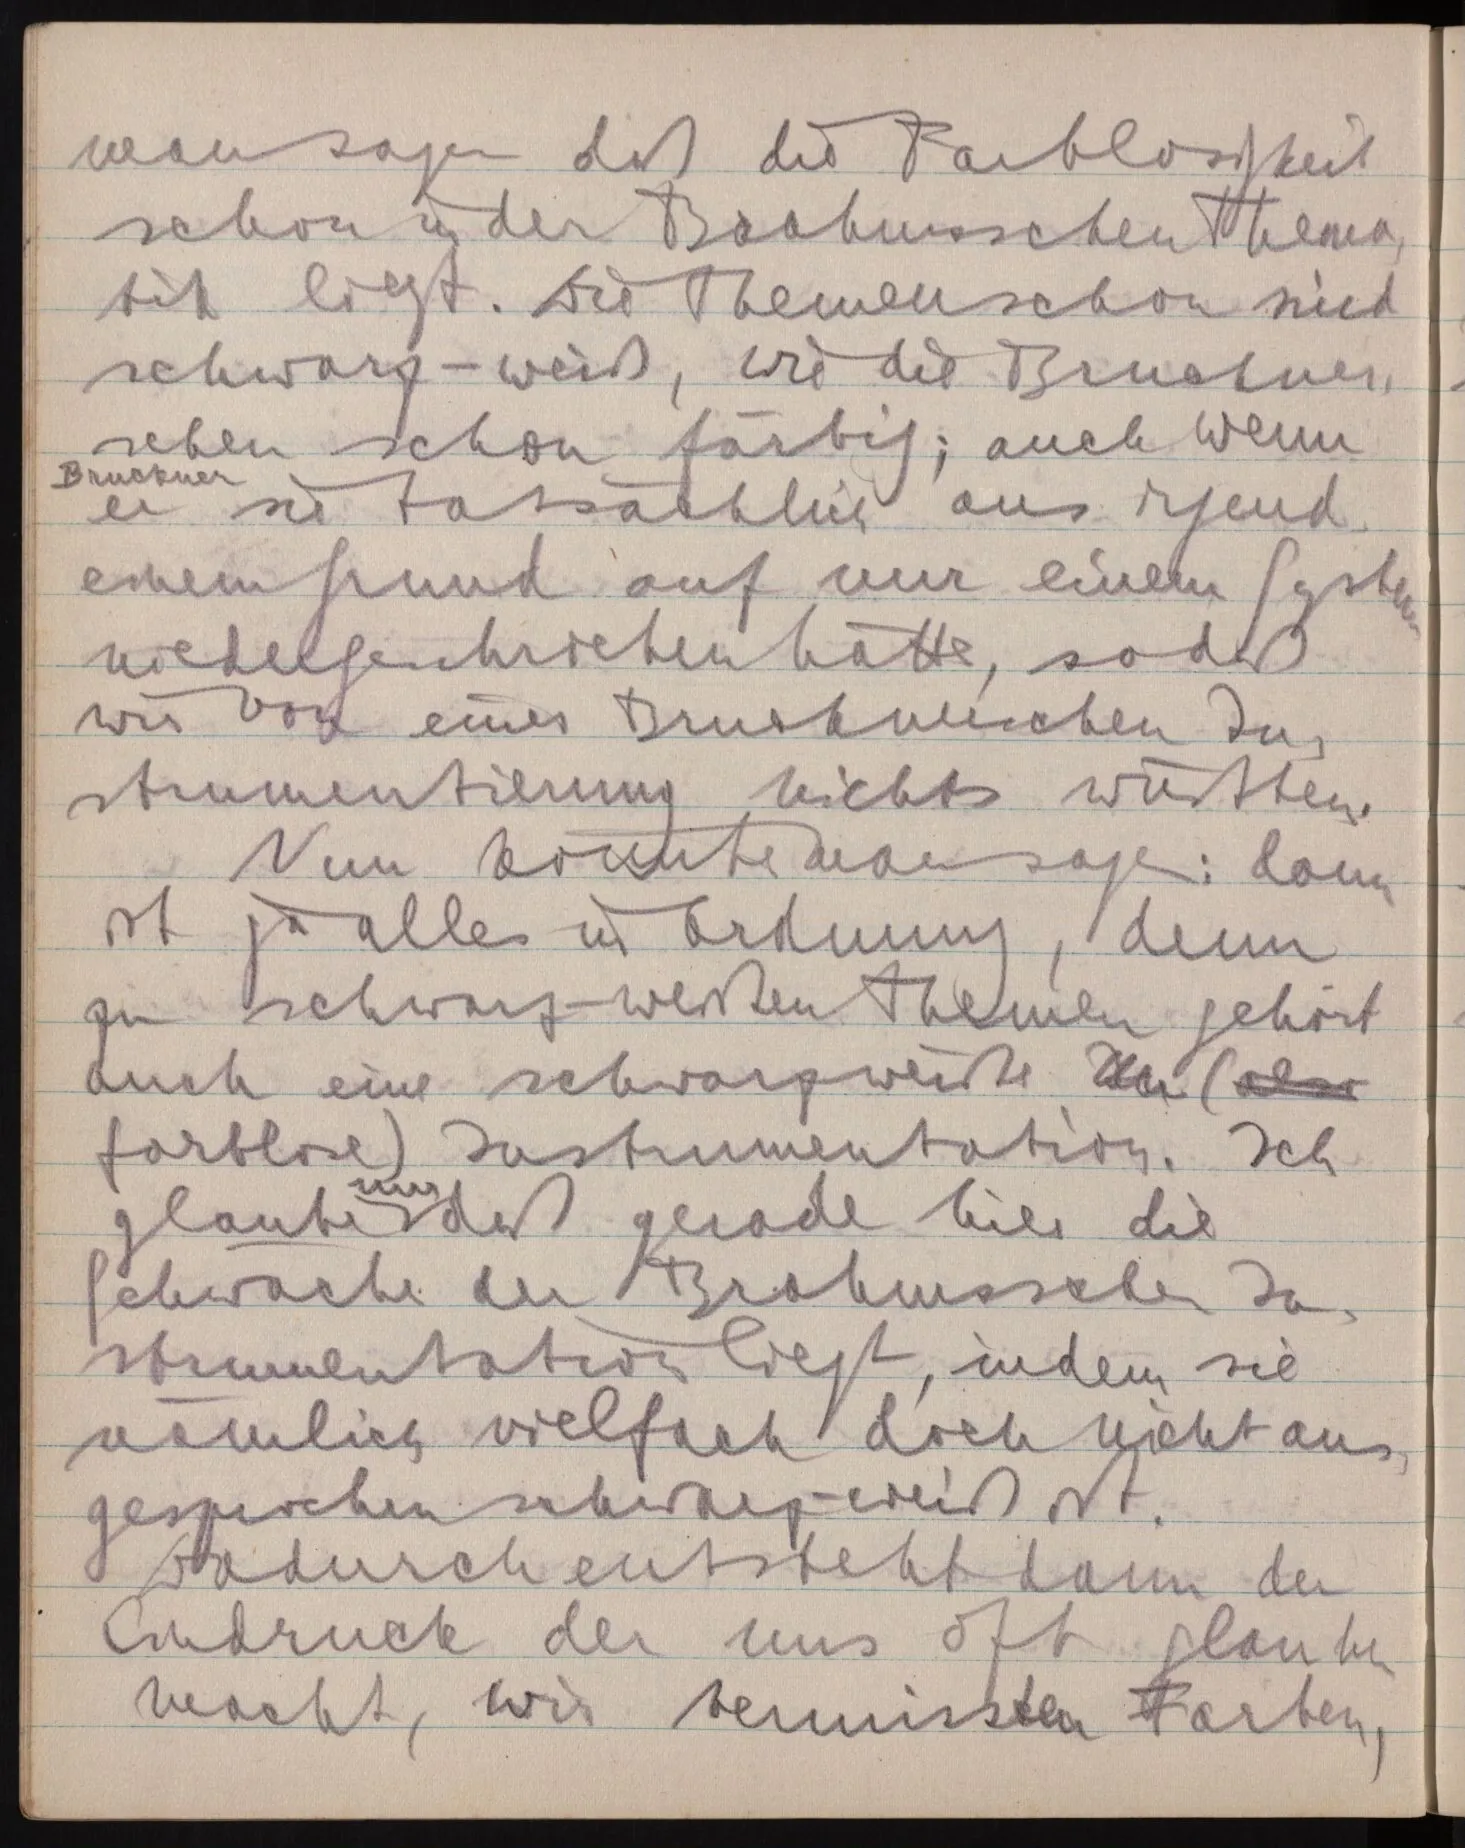 man sagen daß die Farblosigkeit
schon in der Brahmsschen Thema-
tik liegt. Die Themen schon sind
schwarz-weiß, wie die Bruckner-
schen schon färbig; auch wenn
Bruckner
er sie tatsächlich aus irgend
einem Grund auf nur einem System
niedergeschrieben hätte, sodaß
wir von einer Brucknerschen In-
strumentierung nichts wüßten.
Nun könnte man sagen: dann
ist ja alles in Ordnung, denn
zu schwarz-weißen Themen gehört
auch eine schwarzweiße In (also
farblose) Instrumentation. Ich
glaube nur daß gerade hier die
Schwäche der Brahmsschen In-
strumentation liegt, indem sie
nämlich vielfach doch nicht aus-
gesprochen schwarz-weiß ist.
Dadurch entsteht dann der
Eindruck der uns oft glauben
macht, wir vermissten Farben,